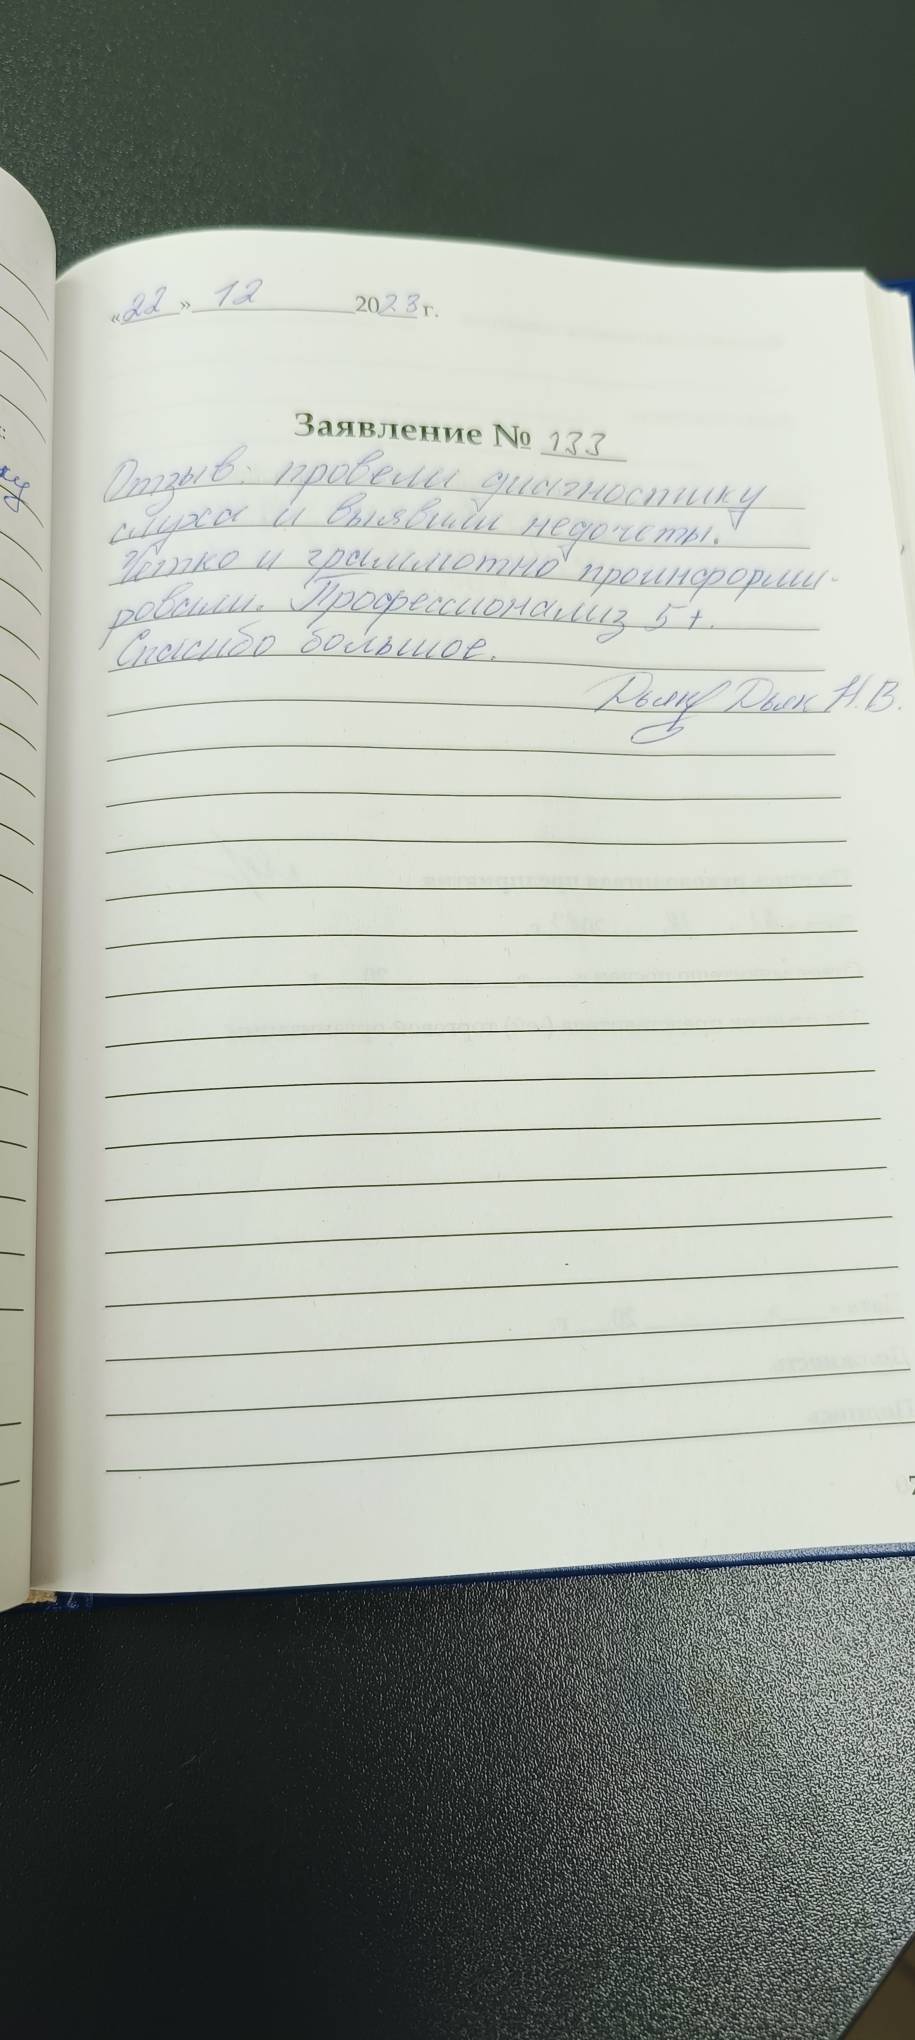 «22» 12 2023 г.
Заявление № 133
Отзыв: провели диагностику
слуха и выявили недочеты.
Четко и граммотно проинформи-
ровали. Профессионализ 5+.
Спасибо большое.
Дьяк Н.В.